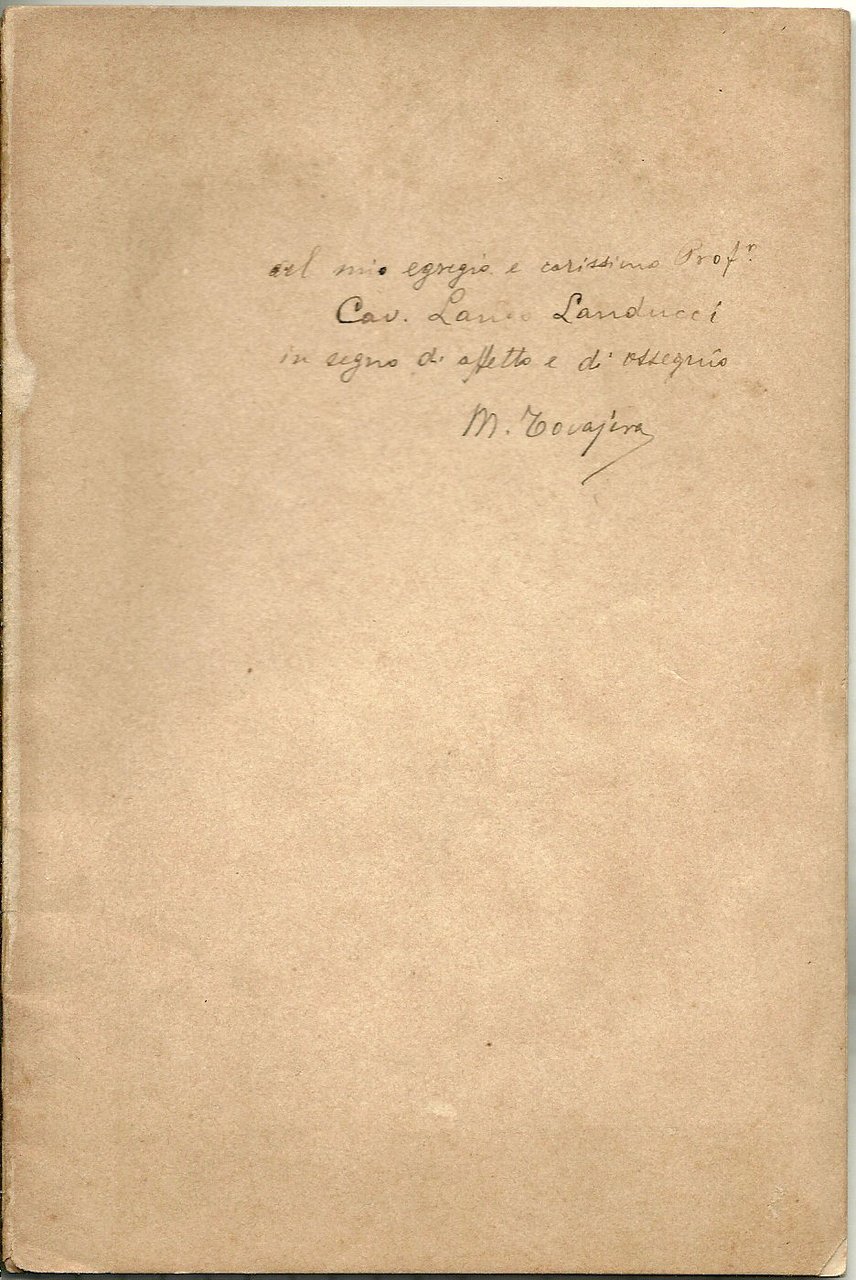 al mio egregio e carissimo Profr.
Cav. Lando Landucci
in segno di affetto e di ossequio
M. Tovajera